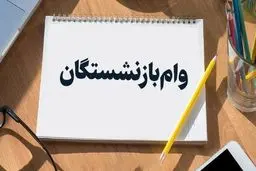 وام بازنشستگان